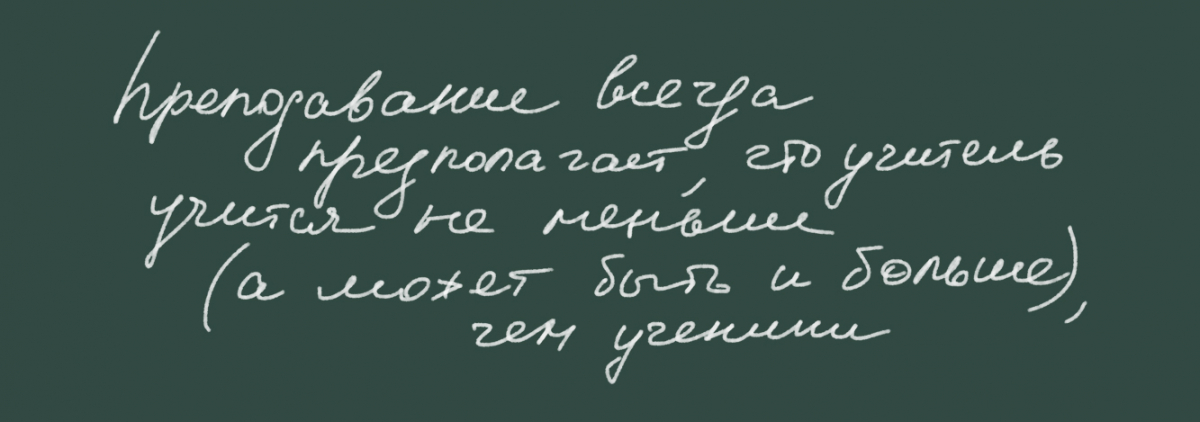 Преподавание всегда
предполагает, что учитель
учится не меньше
(а может быть и больше),
чем ученики